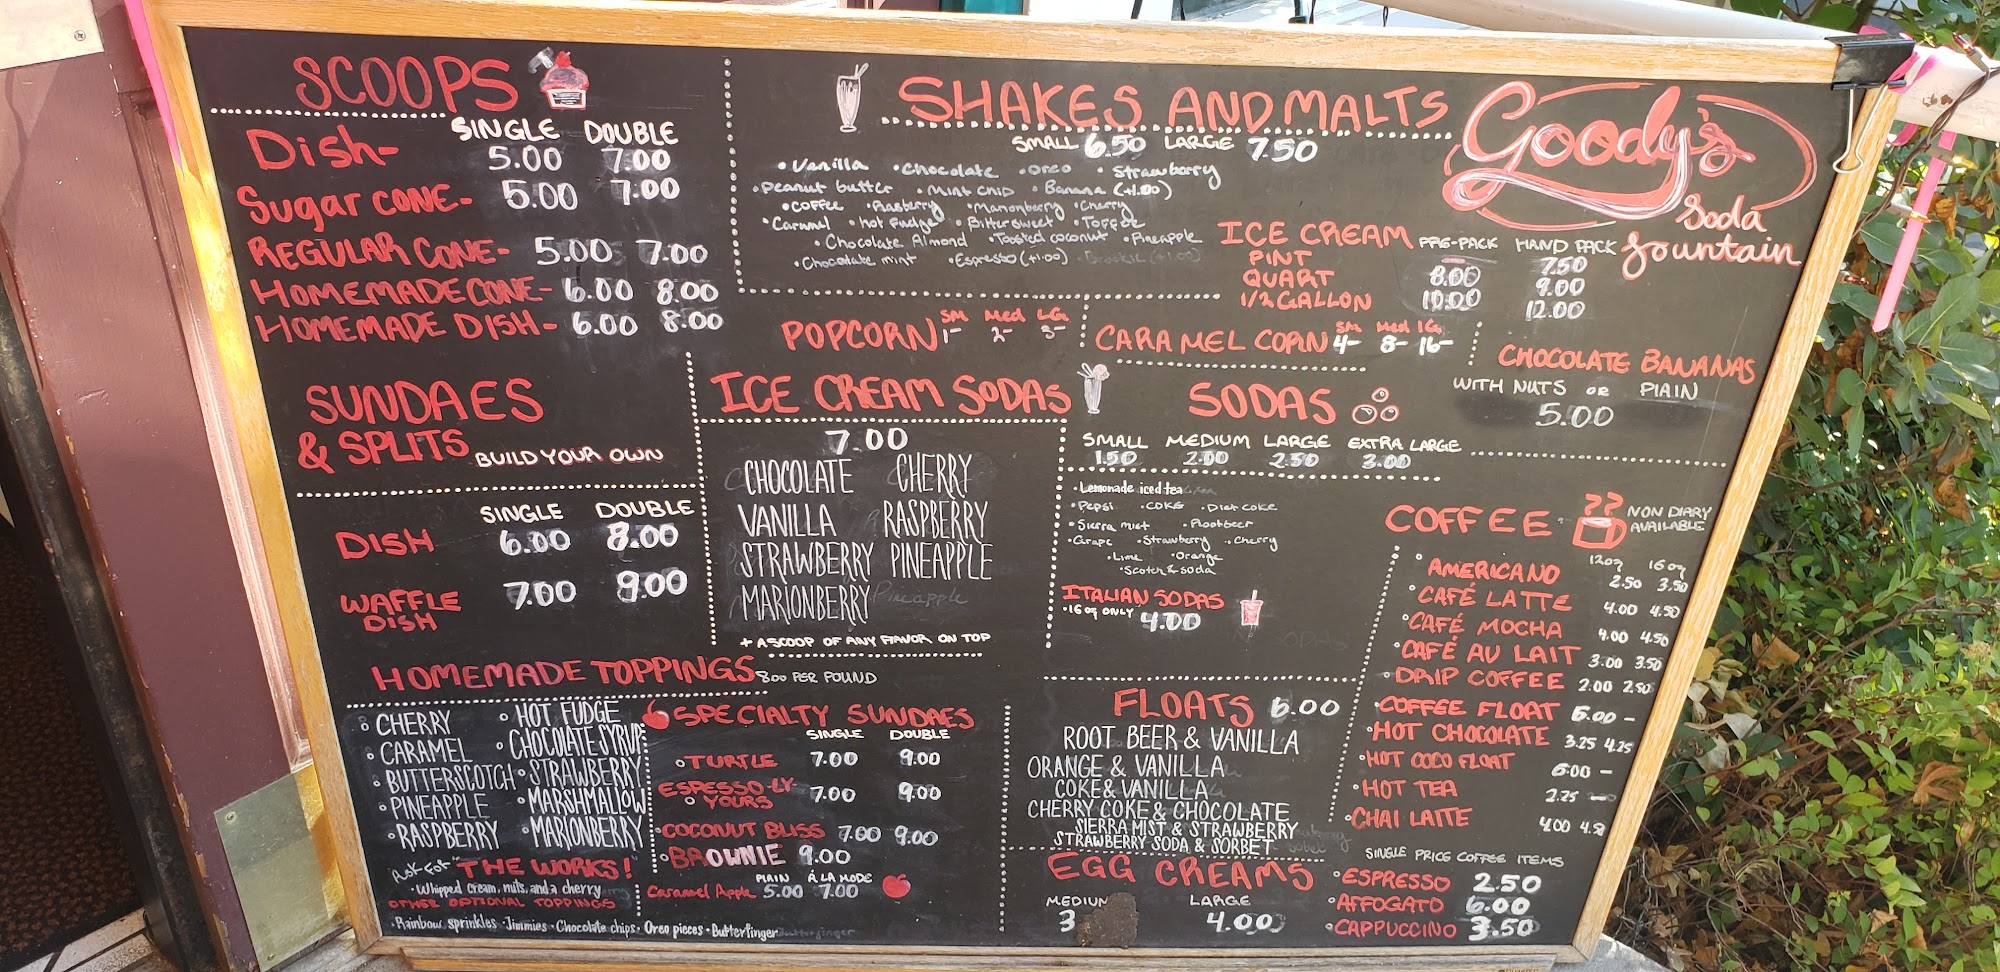 SCOOPS
SINGLE DOUBLE
Dish- 5.00 7.00
Sugar CONE- 5.00 7.00
REGULAR CONE- 5.00 7.00
HOMEMADE CONE- 6.00 8.00
HOMEMADE DISH- 6.00 8.00
SHAKES AND MALTS
SMALL 6.50 LARGE 7.50
• Vanilla • Chocolate • Oreo • Strawberry
• Peanut butter • Mint chip • Banana (+1.00)
• COFFEE • Rasberry • Marionberry • Cherry
• Caramel • hot Fudge • Bittersweet • Toffee
• Chocolate Almond • Toasted coconut • Pineapple
• Chocolate mint • Espresso (+1.00)
Goody's
Soda
fountain
ICE CREAM PRE-PACK HAND PACK
PINT 7.50
QUART 8.00 9.00
1/2 GALLON 10.00 12.00
POPCORN SM Med LG
1- 2- 3-
CARAMEL CORN SM Med LG
4- 8- 16-
CHOCOLATE BANANAS
WITH NUTS OR PLAIN
5.00
SUNDAES
& SPLITS BUILD YOUR OWN
SINGLE DOUBLE
DISH 6.00 8.00
WAFFLE DISH 7.00 9.00
ICE CREAM SODAS
7.00
CHOCOLATE CHERRY
VANILLA RASPBERRY
STRAWBERRY PINEAPPLE
MARIONBERRY
+ A SCOOP OF ANY FLAVOR ON TOP
SODAS
SMALL MEDIUM LARGE EXTRA LARGE
1.50 2.00 2.50 3.00
• Lemonade iced tea
• Pepsi • COKE • Diet coke
• Sierra mist • Rootbeer
• Grape • Strawberry • Cherry
• Lime • Orange
• Scotch & soda
ITALIAN SODAS
• 16 oz ONLY 4.00
COFFEE NON DIARY
AVAILABLE
12oz 16oz
• AMERICANO 2.50 3.50
• CAFÉ LATTE 4.00 4.50
• CAFÉ MOCHA 4.00 4.50
• CAFÉ AU LAIT 3.00 3.50
• DRIP COFFEE 2.00 2.50
• COFFEE FLOAT 6.00 -
• HOT CHOCOLATE 3.25 4.25
• HOT COCO FLOAT 6.00 -
• HOT TEA 2.25 -
• CHAI LATTE 4.00 4.50
SINGLE PRICE COFFEE ITEMS
• ESPRESSO 2.50
• AFFOGATO 6.00
• CAPPUCCINO 3.50
HOMEMADE TOPPINGS 8.00 PER POUND
• CHERRY • HOT FUDGE
• CARAMEL • CHOCOLATE SYRUP
• BUTTERSCOTCH • STRAWBERRY
• PINEAPPLE • MARSHMALLOW
• RASPBERRY • MARIONBERRY
Ask For "THE WORKS!
• Whipped cream, nuts, and a cherry
OTHER OPTIONAL TOPPINGS
• Rainbow sprinkles • Jimmies • Chocolate chips • Oreo pieces • Butterfinger
SPECIALTY SUNDAES
SINGLE DOUBLE
• TURTLE 7.00 9.00
• ESPRESSO-LY YOURS 7.00 9.00
• COCONUT BLISS 7.00 9.00
• BROWNIE 9.00
PLAIN Á LA MODE
Caramel Apple 5.00 7.00
FLOATS 6.00
ROOT BEER & VANILLA
ORANGE & VANILLA
COKE & VANILLA
CHERRY COKE & CHOCOLATE
SIERRA MIST & STRAWBERRY
STRAWBERRY SODA & SORBET
EGG CREAMS
MEDIUM LARGE
3 4.00